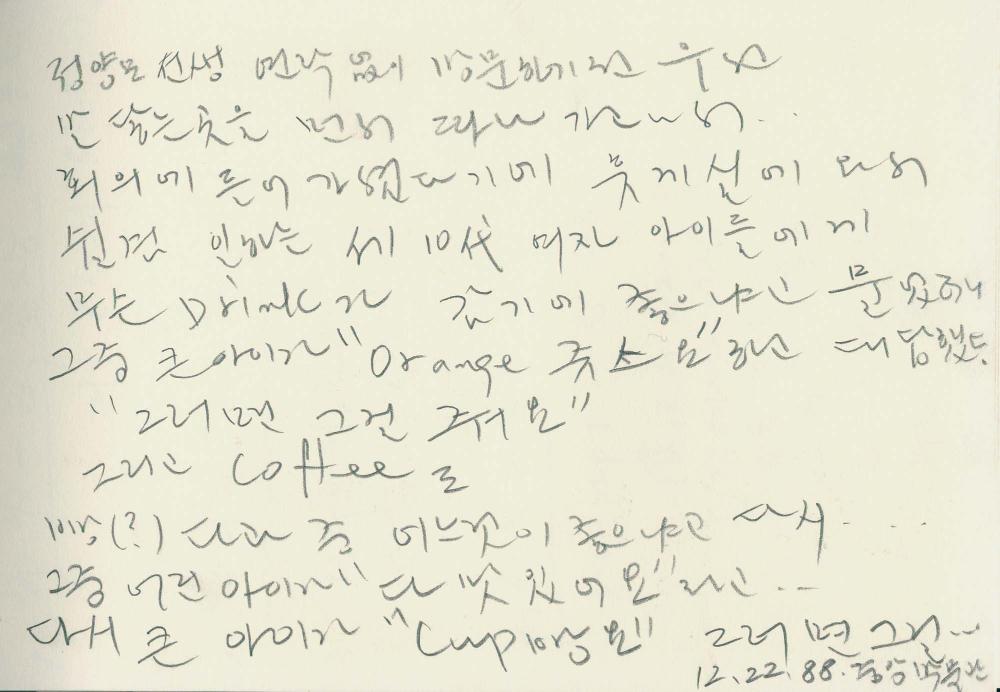 정양모 선생 연락 없이 방문하기란 우선
발 닿는 곳을 먼저 따나 가고나서...
회의에 들어 가셨다기에 휴게실에 와서
쉴겸 일하는 세 10代 여자 아이들에게
무슨 Drink가 값기에 좋으냐고 물었더니
그중 큰 아이가 "Orange 쥬스요"라고 대답했듯.
"그러면 그걸 줘요"
그리고 Coffee로
빵(?) 다과 중 어느것이 좋으냐고 다시....
그중 어린 아이가 "다 맛있어요"라고...
다시 큰 아이가 "Cup빵요" 그러면 그걸...
12.22.88. 중앙박물관